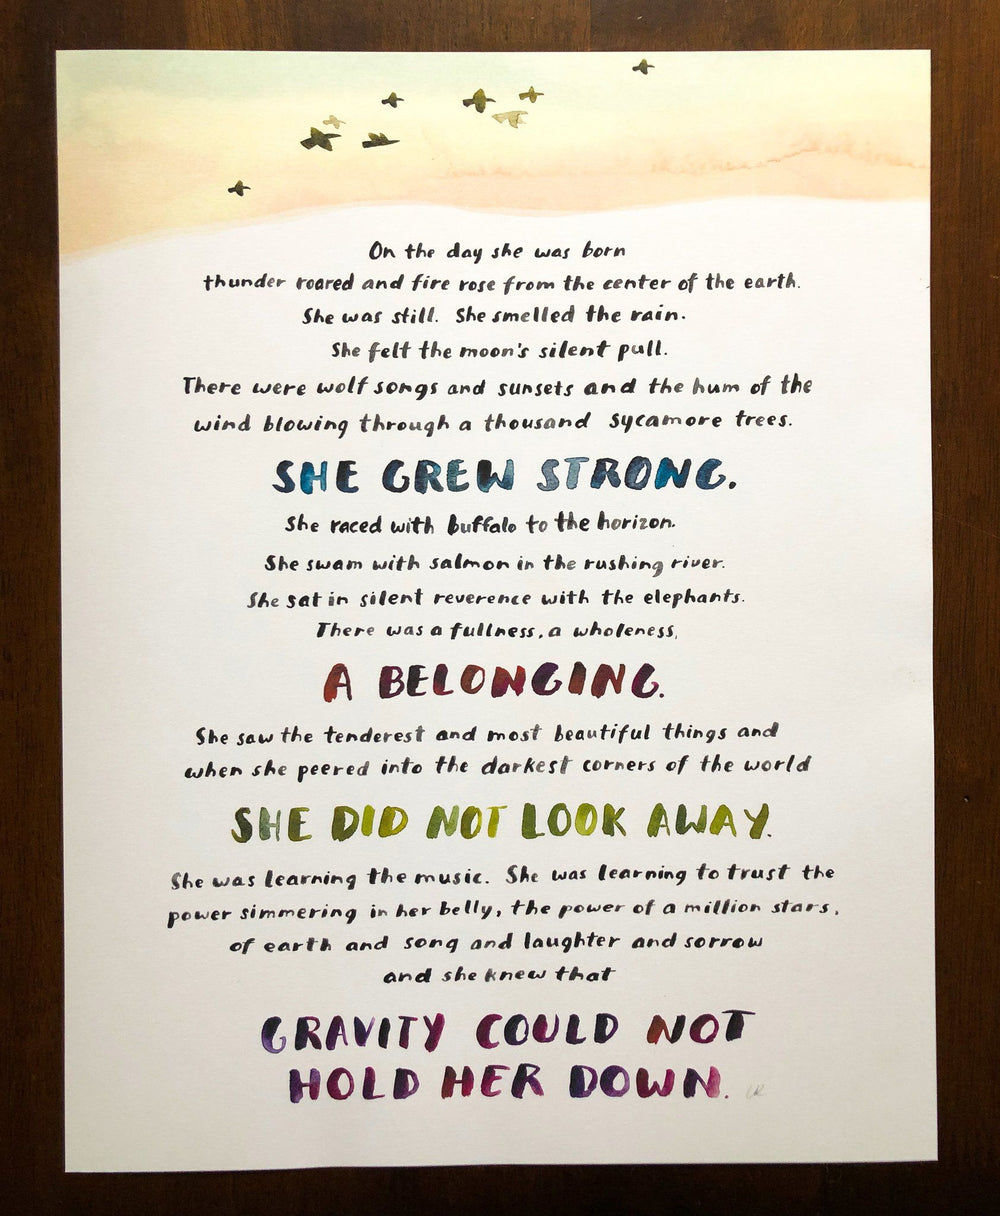 On the day she was born
thunder roared and fire rose from the center of the earth.
She was still. She smelled the rain.
She felt the moon's silent pull.
There were wolf songs and sunsets and the hum of the
wind blowing through a thousand sycamore trees.
SHE GREW STRONG.
She raced with buffalo to the horizon.
She swam with salmon in the rushing river.
She sat in silent reverence with the elephants.
There was a fullness, a wholeness,
A BELONGING.
She saw the tenderest and most beautiful things and
when she peered into the darkest corners of the world
SHE DID NOT LOOK AWAY.
She was learning the music. She was learning to trust the
power simmering in her belly, the power of a million stars,
of earth and song and laughter and sorrow
and she knew that
GRAVITY COULD NOT
HOLD HER DOWN.